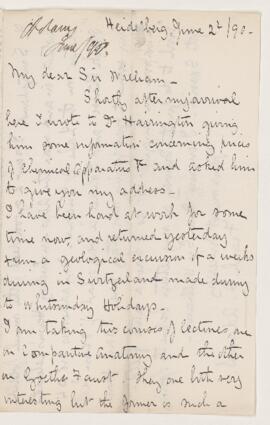 Heidelberg, June 2d /90 -
June /90
My dear Sir William -
Shortly after my arrival
here I wrote to Dr Harrington giving
him some information concerning prices
of chemical apparatus & and asked him
to give you my address -
I have been hard at work for some
time now, and returned yesterday
from a geological excursion of a weeks
during in Switzerland made during
to Whitsunday Holidays -
I am taking two courses of lectures, one
on Comparative Anatomy and the other
on Goethe's Faust - They are both very
interesting but the former is such a